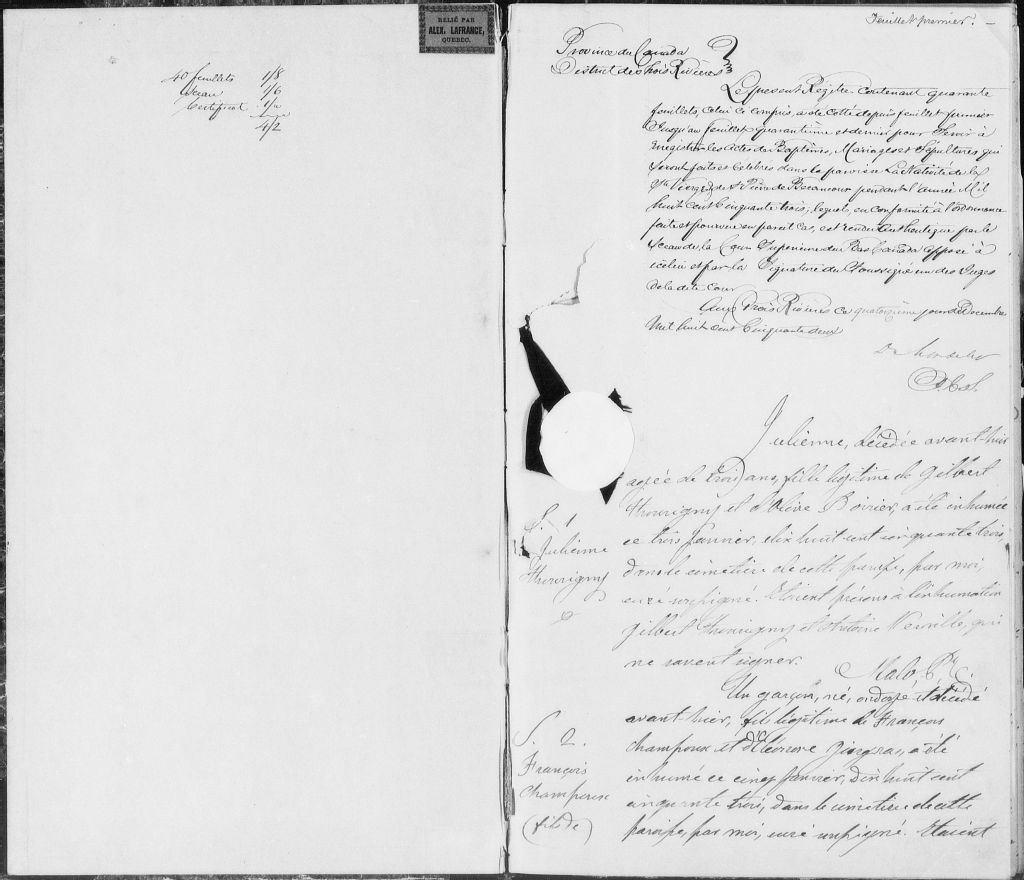 RELIÉ PAR
ALEX. LAFRANCE,
QUEBEC.
40 feuillets 1/8
Sceau 1/6
Certificat 1/"
4/2
Feuillet premier. —
Province du Canada
District des Trois Rivières
Le présent Régitre contenant quarante
feuillets, celui ci compris, a été cotté depuis feuillet premier
Jusqu'au feuillet quarantième et dernier pour Servir à
Enregistrer les Actes des Baptêmes, Mariages et Sépultures qui
Seront faits et Célébrés dans la paroisse La Nativité de la
Ste Vierge de St Pierre de Becancour pendant l'année Mil
huit Cent Cinquante trois; lequel, en conformité à l'ordonnance
faite et pourvue en pareil Cas, est rendu authentique par le
Sceau de la Cour Supérieure du Bas Canada apposé à
icelui et par la Signature du Soussigné un des Juges
de la dite Cour
Aux Trois Rivières Ce quatorzième jour de Decembre
Mil huit Cent Cinquante deux
J.C.S.
Julienne, décédée avant-hier
agée de trois ans, fille légitime de Gilbert
Thouvigny et d'Olive Poirier, a été inhumée
ce trois Janvier, dix huit cent cinquante trois,
dans le cimetière de cette paroisse, par moi,
curé soussigné. Etaient présens à l'inhumation
Gilbert Thouvigny et Antoine Neuville, qui
ne savent signer.
Malo Ptre.
S. 1
Julienne
Thouvigny
Un garçon, né, ondoyé et décédé
avant-hier, fils légitime de François
Champoux et d'Eléonore Gingras, a été
inhumé ce cinq Janvier, dix huit cent
cinquante trois, dans le cimetière de cette
paroisse, par moi, curé soussigné. Etaient
S. 2.
François
Champoux
(fils de)